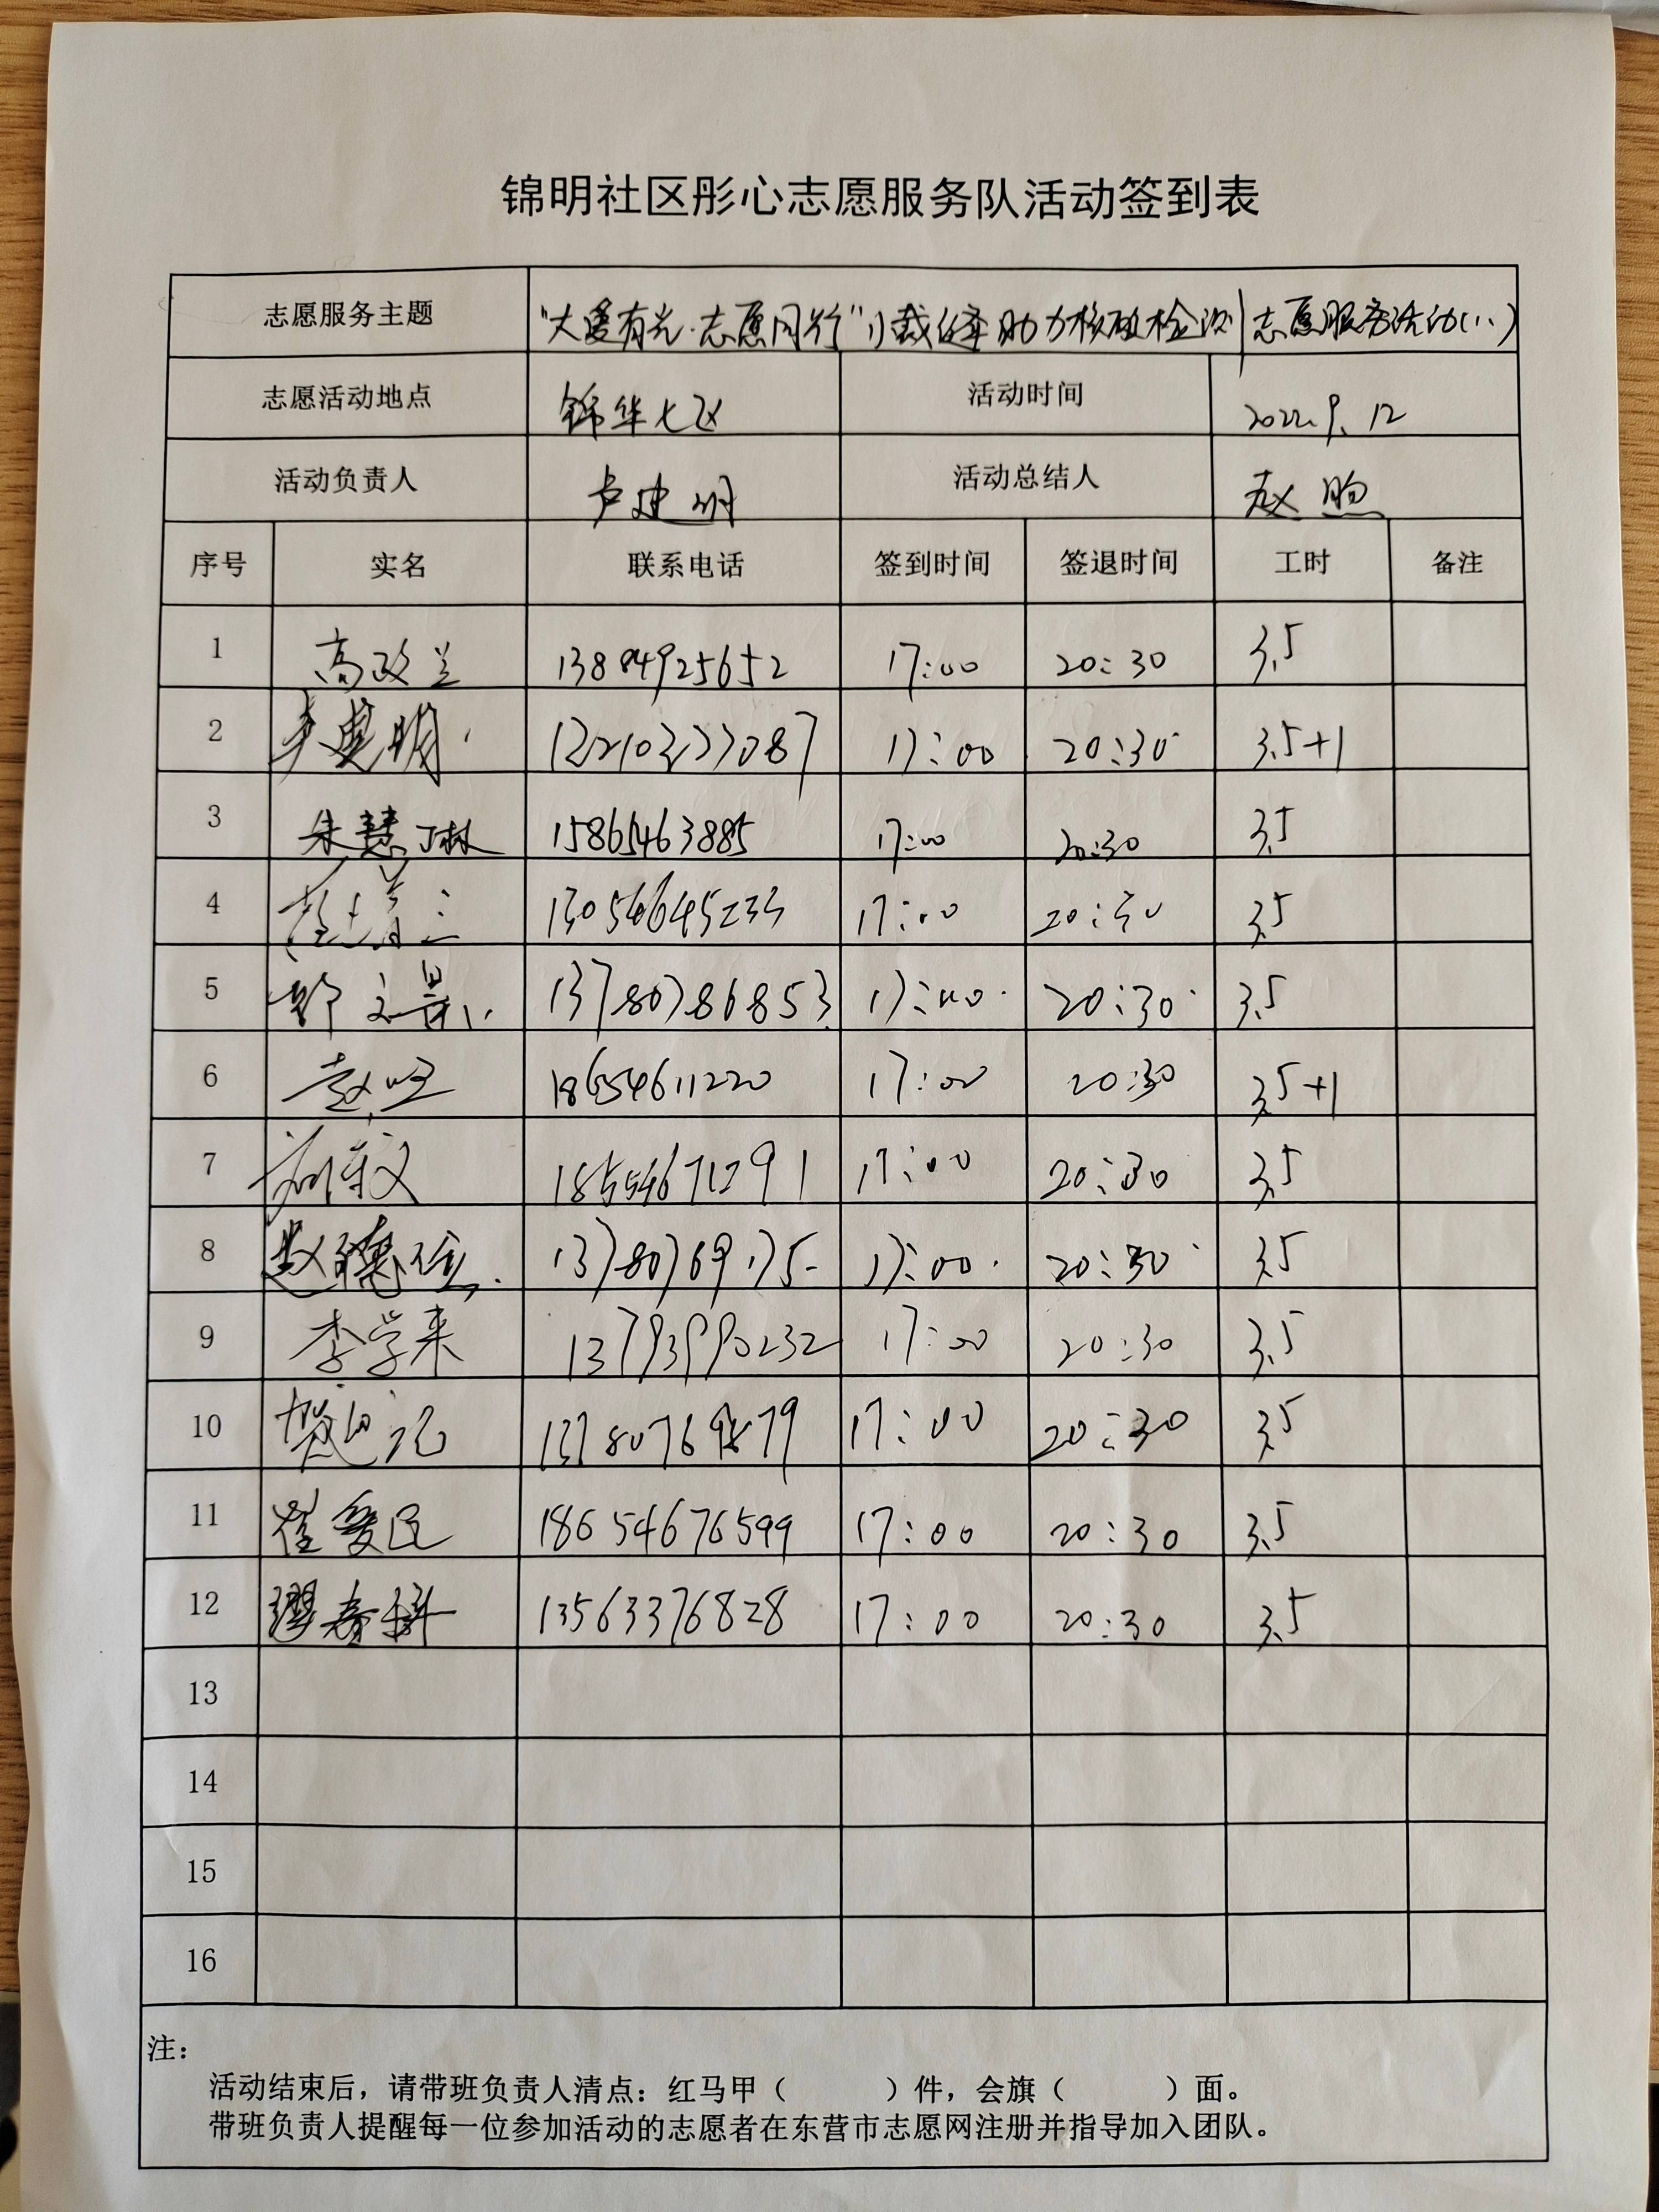 锦明社区彤心志愿服务队活动签到表
志愿服务主题 "大爱有光·志愿同行"小裁缝助力核酸检测志愿服务活动(八)
志愿活动地点 锦华七区 活动时间 2022.9.12
活动负责人 卢建明 活动总结人 赵煦
序号 实名 联系电话 签到时间 签退时间 工时 备注
1 高政兰 13884925652 17:00 20:30 3.5
2 卢建明 17:00 20:30 3.5+1
3 朱慧琳 15865463885 17:00 20:30 3.5
4 13054645233 17:00 20:30 3.5
5 13780786853 17:00 20:30 3.5
6 18654611220 17:00 20:30 3.5+1
7 18554671291 17:00 20:30 3.5
8 赵德位 17:00 20:30 3.5
9 李学来 13793990232 17:00 20:30 3.5
10 17:00 20:30 3.5
11 崔爱民 18654676599 17:00 20:30 3.5
12 13563376828 17:00 20:30 3.5
13
14
15
16
注:
活动结束后，请带班负责人清点：红马甲（ ）件，会旗（ ）面。
带班负责人提醒每一位参加活动的志愿者在东营市志愿网注册并指导加入团队。